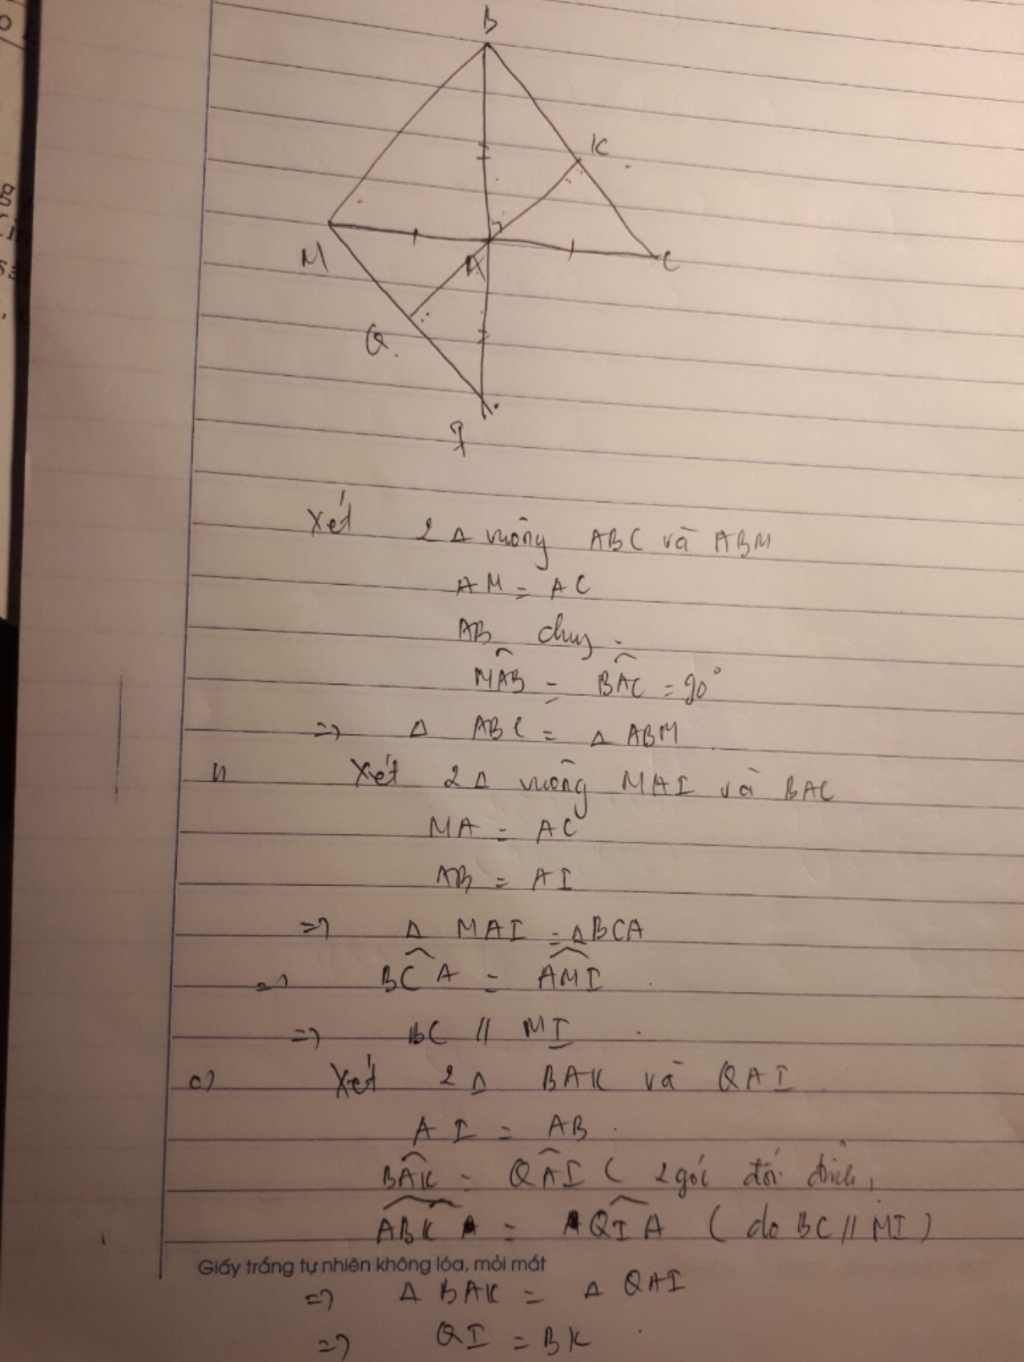 B
K
M
A
C
Q
I
Xét 2 Δ vuông ABC và ABM
AM = AC
AB chung
MAB = BAC = 90°
=> Δ ABC = Δ ABM
Xét 2 Δ vuông MAI và BAC
MA = AC
AB = AI
=> Δ MAI = Δ BCA
=> BCA = AMI
=> BC // MI
c) Xét 2 Δ BAK và QAI
AI = AB
BAK = QAI ( 2 góc đối đỉnh )
ABK = QIA ( do BC // MI )
Giấy trắng tự nhiên không lóa, mỏi mắt
=> Δ BAK = Δ QAI
=> QI = BK